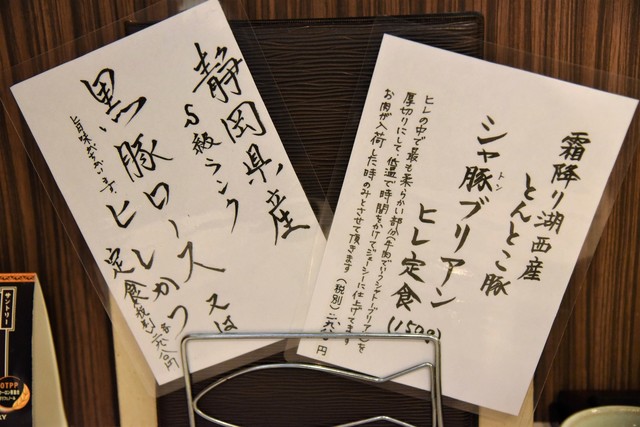 霜降り湖西産
とんとこ豚
シャ豚ブリアン
トン
ヒレ定食(150g)
ヒレの中で最も柔らかい部分(牛肉でいうシャトーブリアン)を
厚切りにして低温で時間をかけてジューシーに仕上げてます
お肉が入荷した時のみとさせて頂きます(税別)二九八〇円
静岡県産
S級ランク
黒豚ロース又は
ヒレかつ
定食(税別)
旨味がちがいます。
サントリー